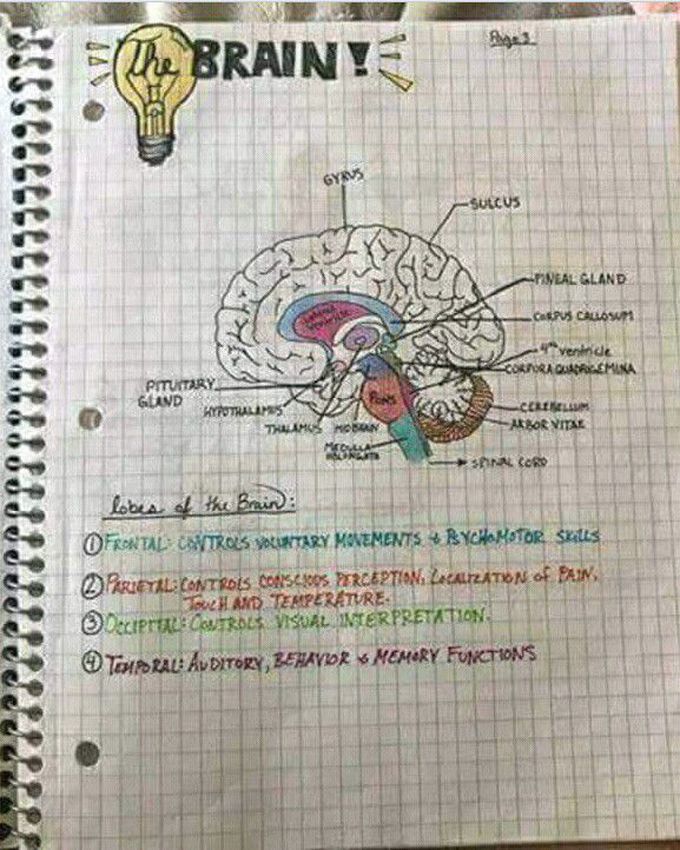 The BRAIN!
Page 3
GYRUS
SULCUS
PINEAL GLAND
Lateral
Ventricle
CORPUS CALLOSUM
4th ventricle
CORPORA QUADRIGEMINA
PITUITARY
GLAND
HYPOTHALAMUS
PONS
CEREBELLUM
ARBOR VITAE
THALAMUS
MIDBRAIN
MEDULLA
OBLONGATA
SPINAL CORD
lobes of the Brain:
① FRONTAL: CONTROLS VOLUNTARY MOVEMENTS & PSYCHOMOTOR SKILLS
② PARIETAL: CONTROLS CONSCIOUS PERCEPTION, LOCALIZATION of PAIN,
TOUCH AND TEMPERATURE.
③ OCCIPITAL: CONTROLS VISUAL INTERPRETATION.
④ TEMPORAL: AUDITORY, BEHAVIOR & MEMORY FUNCTIONS